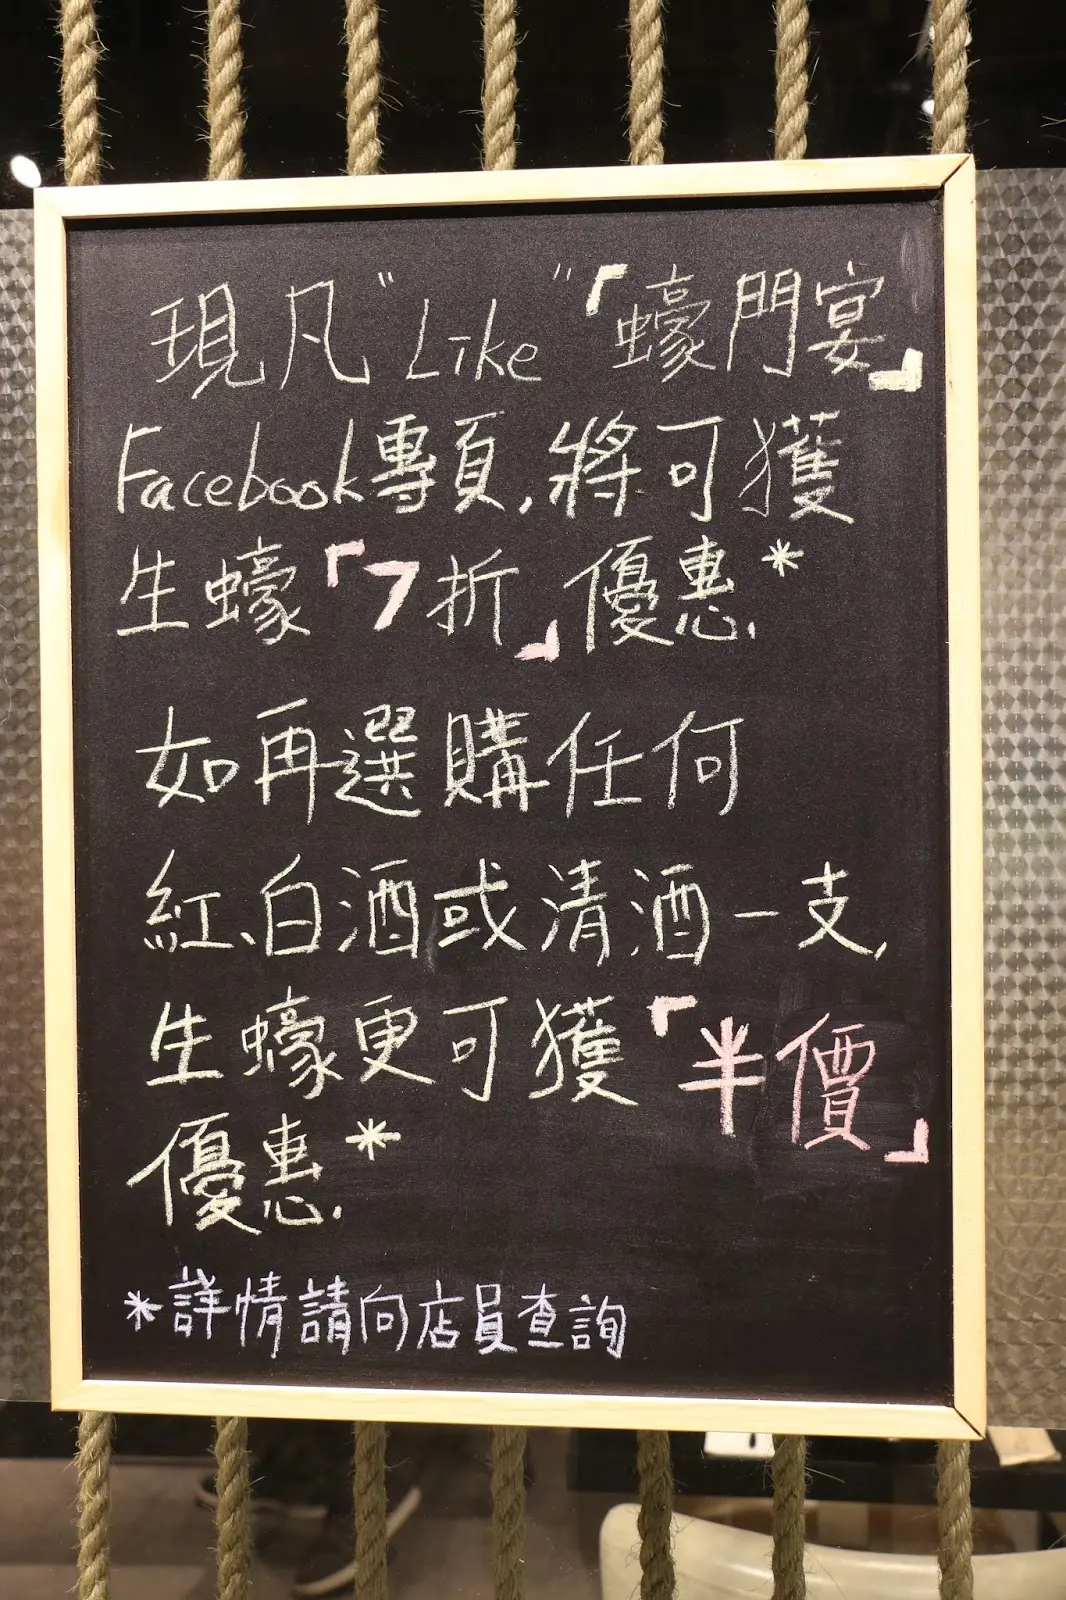 現凡"Like"「蠔門宴」
Facebook專頁,將可獲
生蠔「7折」優惠*.
如再選購任何
紅、白酒或清酒一支,
生蠔更可獲「半價」
優惠*.
*詳情請向店員查詢